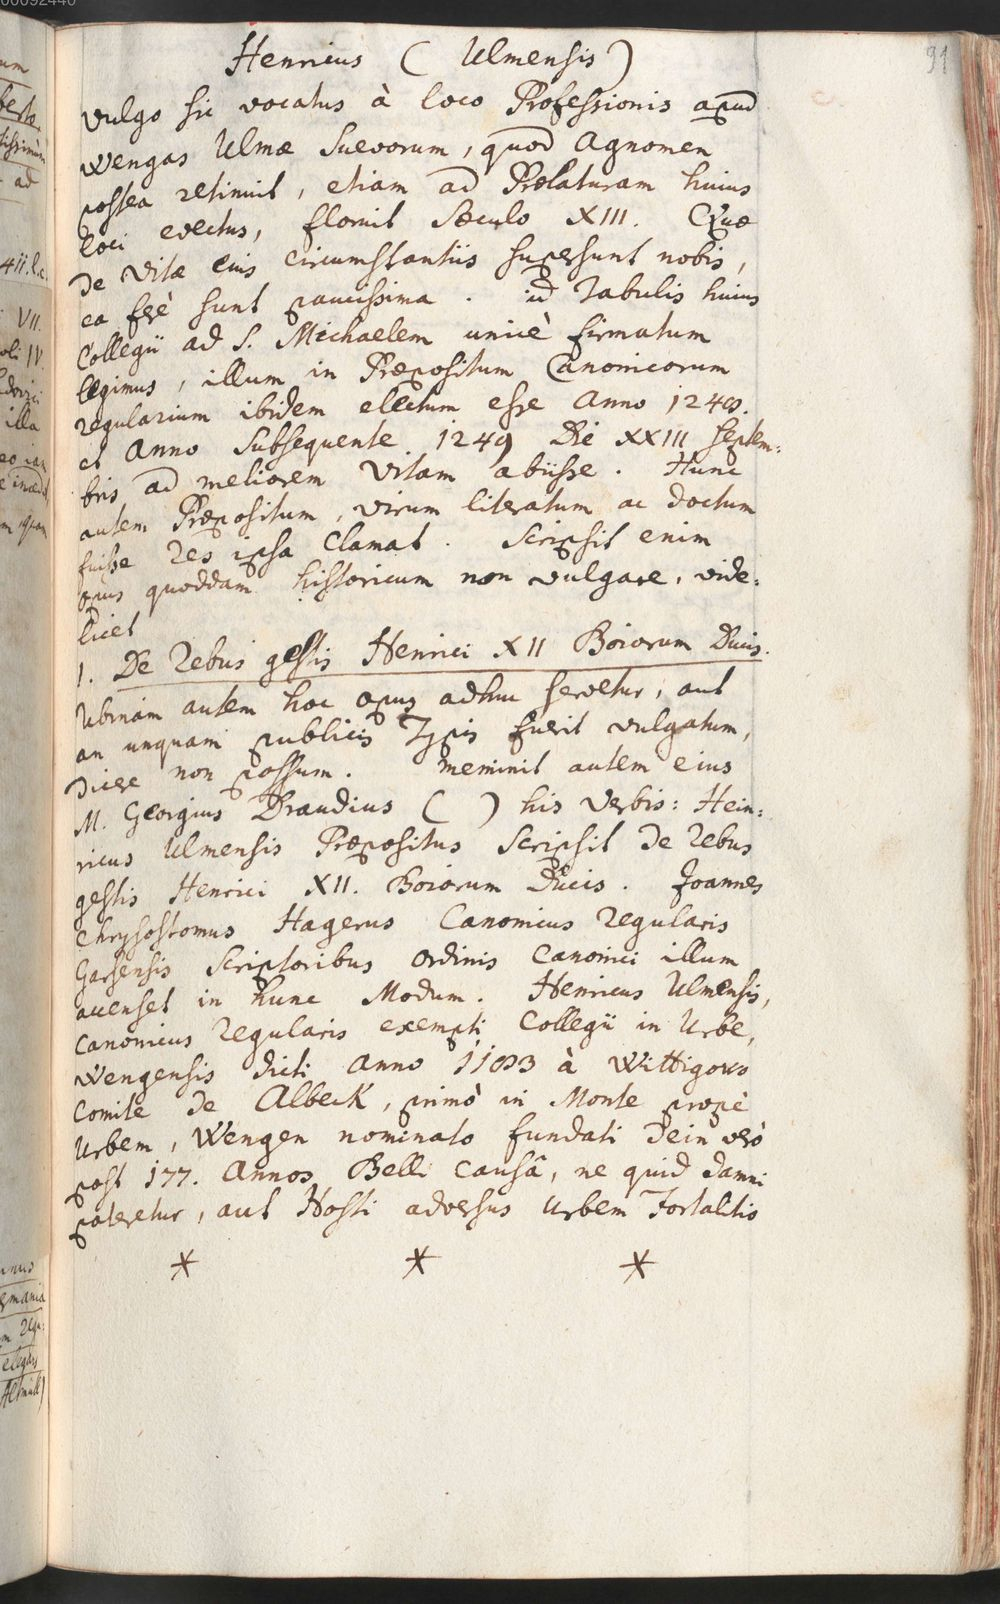 91
Henricus ( Ulmensis )
vulgo sic vocatus à loco Professionis apud
Wengas Ulmæ Suevorum, quod Agnomen
postea retinuit, etiam ad Prælaturam huius
loci evectus, floruit Sæculo XIII. Quæ
de vitæ eius circumstantiis supersunt nobis,
ea ferè sunt paucissima. id Tabulis huius
Collegii ad S. Michaelem unicè firmatum
legimus, illum in Præpositum Canonicorum
regularium ibidem electum esse Anno 1248.
et Anno subsequente 1249 Die XXIII Septem:
bris ad meliorem vitam abiisse. Hunc
autem Præpositum, virum literatum ac doctum
fuisse res ipsa clamat. Scripsit enim
opus quoddam historicum non vulgare, vide:
licet
1. De rebus gestis Henrici XII Boiorum Ducis.
Ubinam autem hoc opus adhuc servetur, aut
an unquam publicis Typis fuerit vulgatum,
dicere non possum. meminit autem eius
M. Georgius Draudius ( ) his verbis: Hein:
ricus Ulmensis Præpositus scripsit de rebus
gestis Henrici XII. Boiorum Ducis. Joannes
Chrysostomus Hagerus Canonicus regularis
Garsensis scriptoribus ordinis Canonici illum
accenset in hunc Modum. Henricus Ulmensis,
Canonicus regularis exempti Collegii in Urbe,
Wengensis dicti Anno 1183 à Wittigowo
Comite de Albeck, primò in Monte propè
Urbem, Wengen nominato fundati dein verò
post 177. Annos Belli causâ, ne quid damni
pateretur, aut Hosti adversus Urbem Fortalitio
* * *